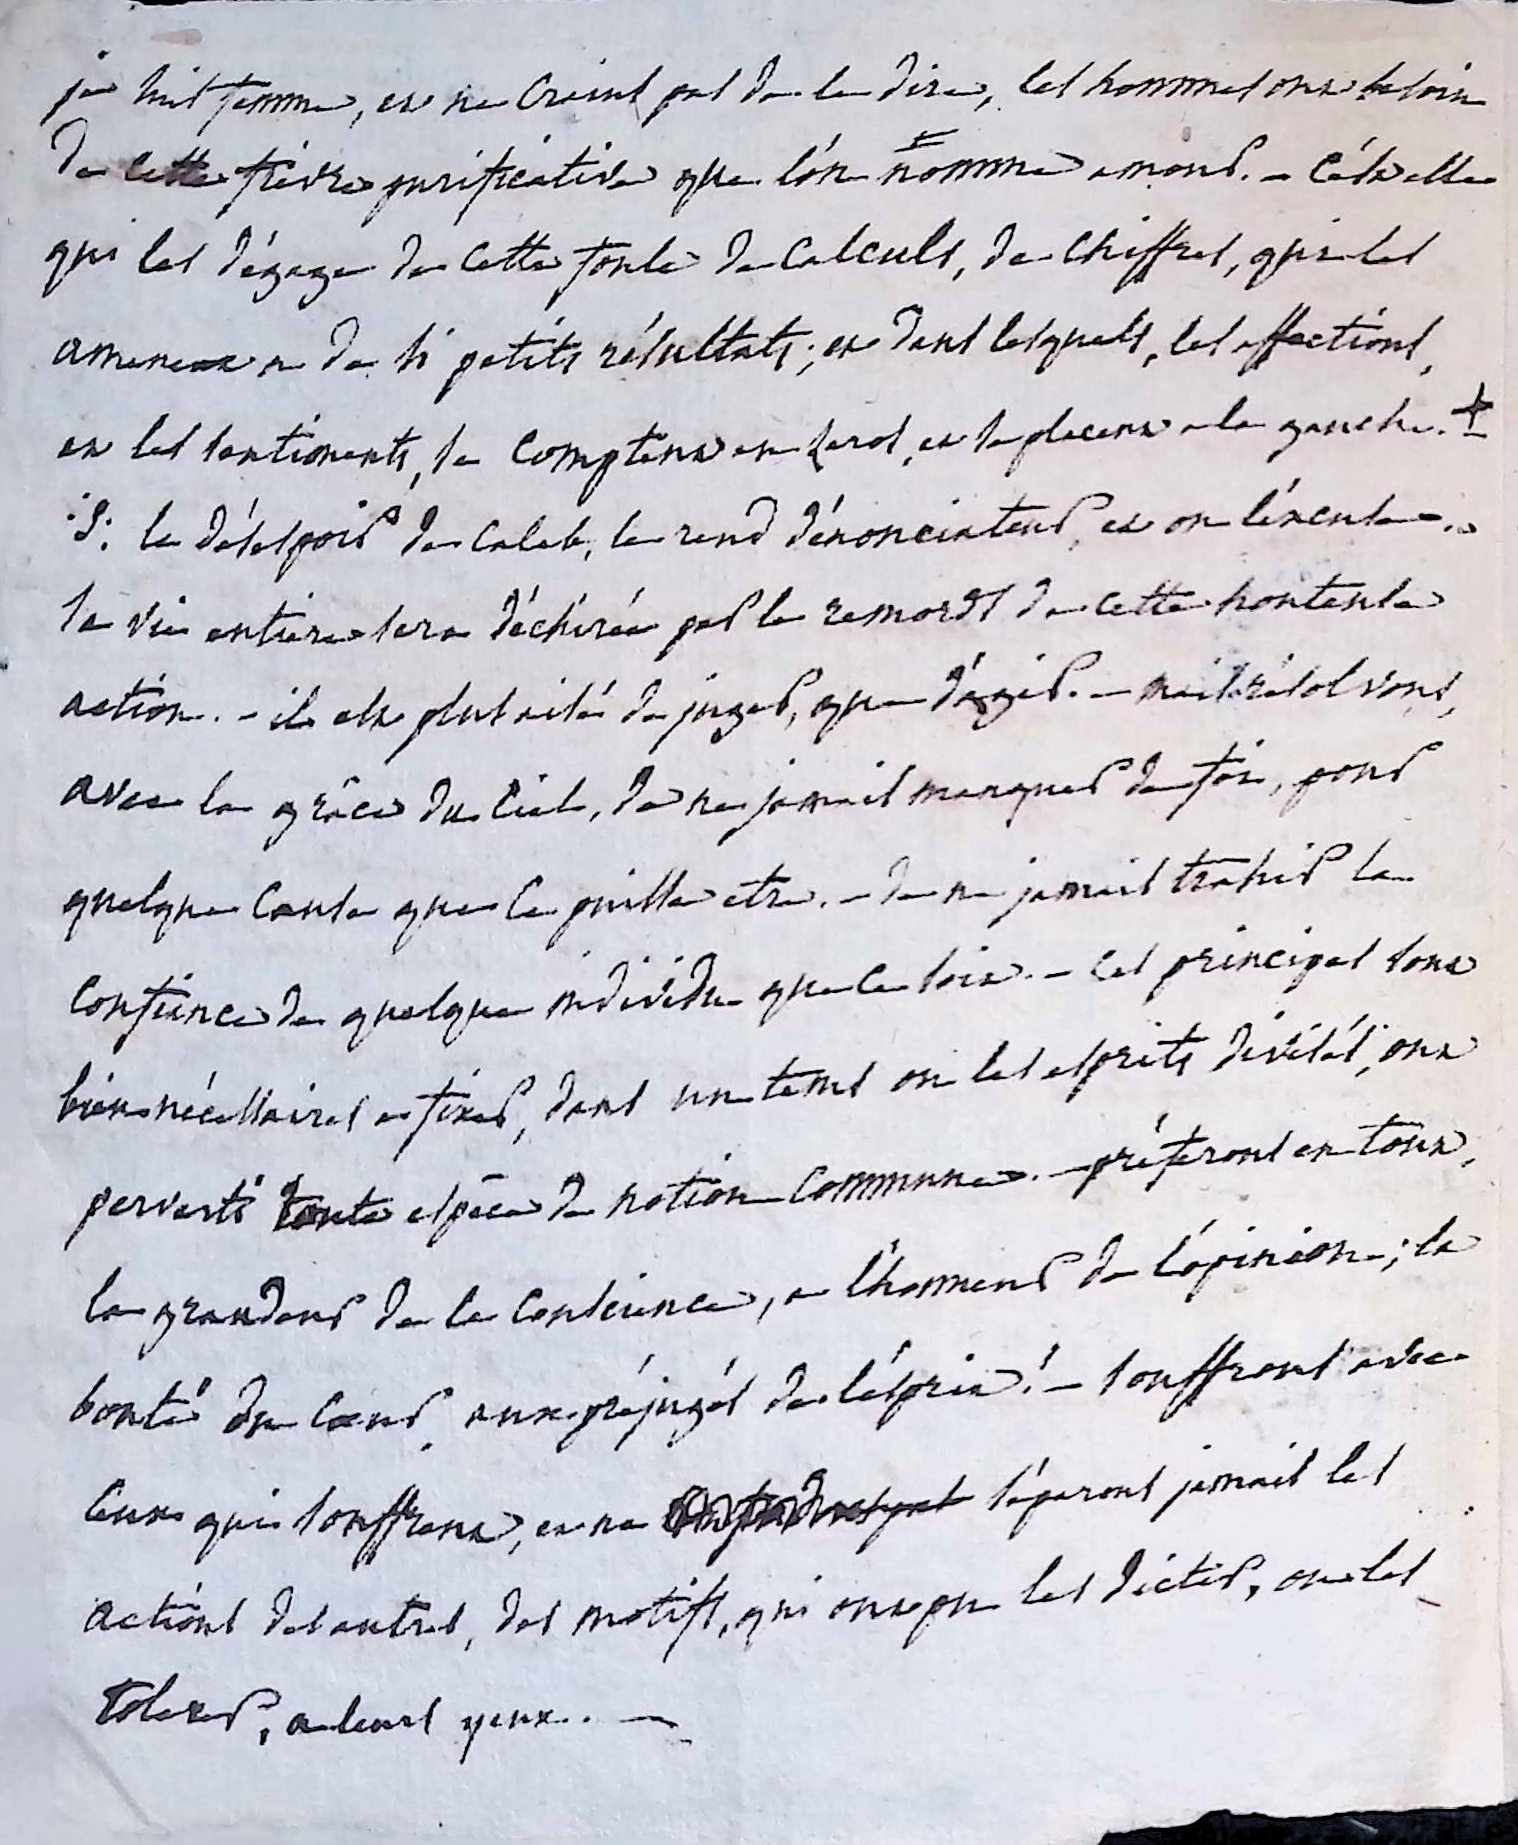 je suis femme, et ne crains pas de le dire, les hommes ont besoin
de cette fièvre purificative que l'on nomme amour. - C'est elle
qui les dégage de cette foule de calculs, de chiffres, qui les
amenent a de si petits résultats; et dans lesquels, les affections,
et les sentiments, se comptent en zeros, et se placent a la gauche. +
le désespoir de Caleb, le rend dénonciateur, et on l'excuse..
sa vie entiere sera déchirée par le remords de cette honteuse
action. - il est plus aisé de juger, que d'agir. - mais résolvons,
avec la grâce du Ciel, de ne jamais manquer de foi, pour
quelque cause que ce puisse etre. - de ne jamais trahir la
confiance de quelque individu que ce soit. - Ces principes sont
bien nécessaires a fixer, dans un tems ou les esprits divisés, ont
perverti toute espèce de notion commune. - préferons en tout,
la grandeur de la conscience, a l'honneur de l'opinion; la
bonté du coeur, aux préjugés de l'esprit! - souffrons avec
ceux qui souffrent, et ne séparons jamais les
actions des autres, des motifs, qui ont pu les dicter, ou les
tolerer, a leurs yeux. -